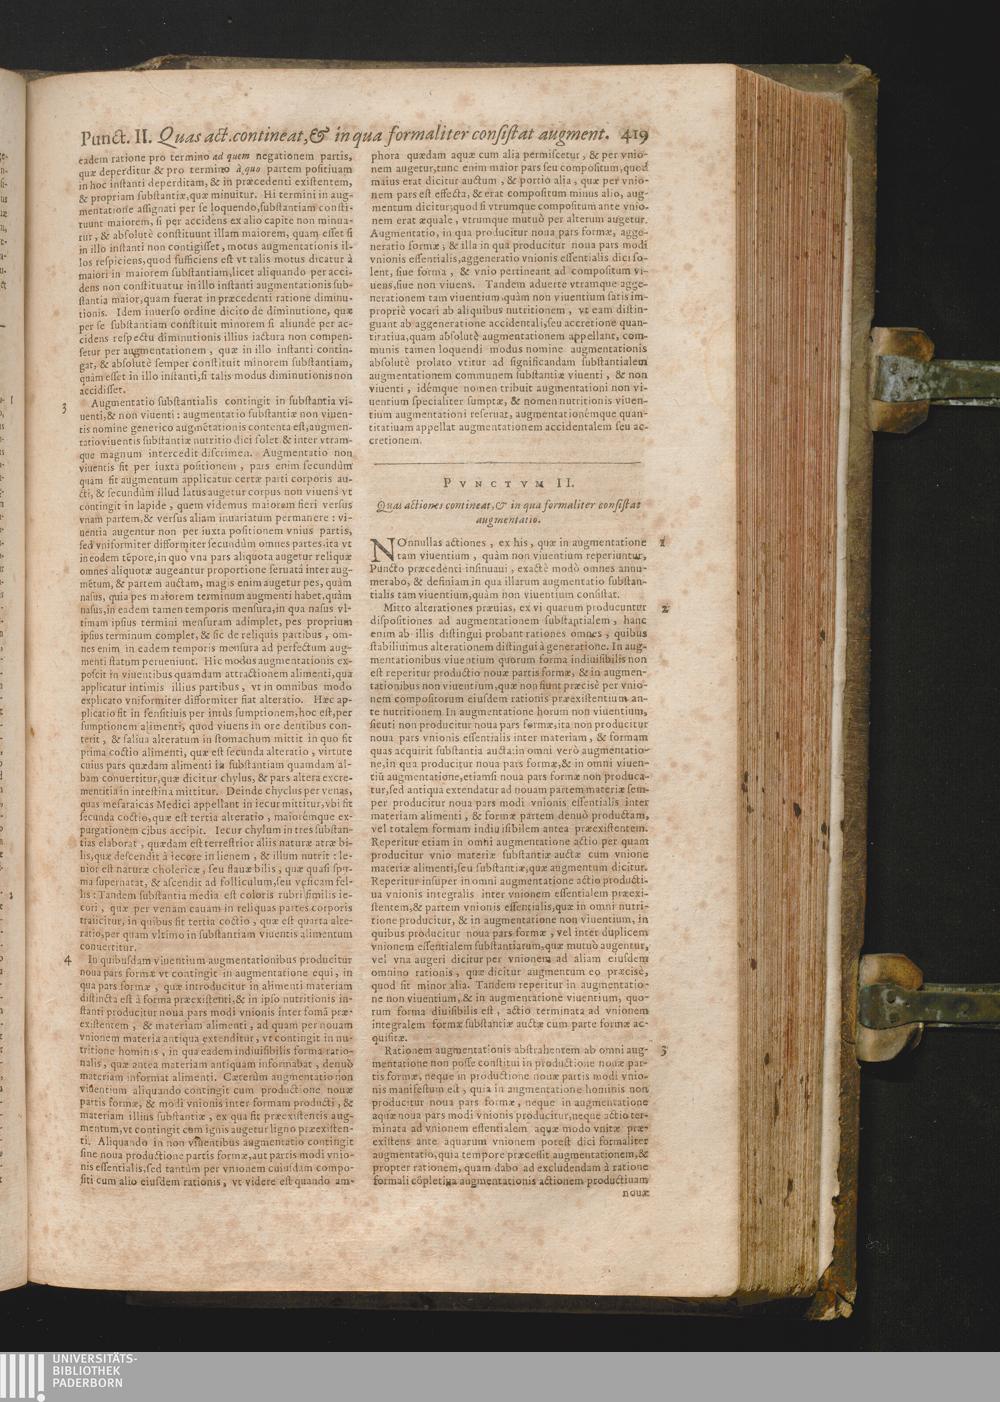 Punct. II. Quas act. contineat, & in qua formaliter consistat augment. 419
eadem ratione pro termino ad quem negationem partis,
quæ deperditur & pro termino à quo partem positiuam
in hoc instanti deperditam, & in præcedenti existentem,
& propriam substantiæ, quæ minuitur. Hi termini in aug-
mentatione assignati per se loquendo, substantiam consti-
tuunt maiorem, si per accidens ex alio capite non minua-
tur, & absolutè constituunt illam maiorem, quam esset si
in illo instanti non contigisset, motus augmentationis il-
los respiciens, quod sufficiens est vt talis motus dicatur à
maiori in maiorem substantiam, licet aliquando per acci-
dens non constituatur in illo instanti augmentationis sub-
stantia maior, quam fuerat in præcedenti ratione diminu-
tionis. Idem inuerso ordine dicito de diminutione, quæ
per se substantiam constituit minorem si aliunde per ac-
cidens respectu diminutionis illius iactura non compen-
setur per augmentationem, quæ in illo instanti contin-
gat, & absolutè semper constituit minorem substantiam,
quàm esset in illo instanti, si talis modus diminutionis non
accidisset.
3 Augmentatio substantialis contingit in substantia vi-
uenti, & non viuenti: augmentatio substantiæ non viuen-
tis nomine generico augmẽtationis contenta est, augmen-
tatio viuentis substantiæ nutritio dici solet & inter vtram-
que magnum intercedit discrimen. Augmentatio non
viuentis fit per iuxta positionem, pars enim secundùm
quam fit augmentum applicatur certæ parti corporis au-
cti, & secundùm illud latus augetur corpus non viuens vt
contingit in lapide, quem videmus maiorem fieri versus
vnam partem, & versus aliam inuariatum permanere: vi-
uentia augentur non per iuxta positionem vnius partis,
sed vniformiter difformiter secundùm omnes partes ita vt
in eodem tẽpore, in quo vna pars aliquota augetur reliquæ
omnes aliquotæ augeantur proportione seruatá inter aug-
mẽtum, & partem auctam, magis enim augetur pes, quàm
nasus, quia pes maiorem terminum augmenti habet, quàm
nasus, in eadem tamen temporis mensura, in qua nasus vl-
timam ipsius termini mensuram adimplet, pes proprium
ipsius terminum complet, & sic de reliquis partibus, om-
nes enim in eadem temporis mensura ad perfectum aug-
menti statum perueniunt. Hic modus augmentationis ex-
poscit in viuentibus quamdam attractionem alimenti, quæ
applicatur intimis illius partibus, vt in omnibus modo
explicato vniformiter difformiter fiat alteratio. Hæc ap-
plicatio fit in sensitiuis per intùs sumptionem, hoc est, per
sumptionem alimenti, quod viuens in ore dentibus con-
terit, & saliua alteratum in stomachum mittit in quo fit
prima coctio alimenti, quæ est secunda alteratio, virtute
cuius pars quædam alimenti in substantiam quamdam al-
bam conuertitur, quæ dicitur chylus, & pars altera excre-
mentitia in intestina mittitur. Deinde chyclus per venas,
quas mesaraicas Medici appellant in iecur mittitur, vbi fit
secunda coctio, quæ est tertia alteratio, maiorémque ex-
purgationem cibus accipit. Iecur chylum in tres substan-
tias elaborat, quædam est terrestrior aliis naturæ atræ bi-
lis, quæ descendit à iecore in lienem, & illum nutrit: le-
uior est naturæ cholericæ, seu flauæ bilis, quæ quasi spu-
ma supernatat, & ascendit ad folliculum, seu vesicam fel-
lis: Tandem substantia media est coloris rubri similis ie-
cori, quæ per venam cauam in reliquas partes corporis
traiicitur, in quibus fit tertia coctio, quæ est quarta alte-
ratio, per quam vltimo in substantiam viuentis alimentum
conuertitur.
4 In quibusdam viuentium augmentationibus producitur
noua pars formæ vt contingit in augmentatione equi, in
qua pars formæ, quæ introducitur in alimenti materiam
distincta est à forma præexistenti, & in ipso nutritionis in-
stanti producitur noua pars modi vnionis inter fomã præ-
existentem, & materiam alimenti, ad quam per nouam
vnionem materia antiqua extenditur, vt contingit in nu-
tritione hominis, in qua eadem indiuisibilis forma ratio-
nalis, quæ antea materiam antiquam informabat, denuò
materiam informat alimenti. Cæterùm augmentatio non
viuentium aliquando contingit cum productione nouæ
partis formæ, & modi vnionis inter formam producti, &
materiam illius substantiæ, ex qua fit præexistentis aug-
mentum, vt contingit cum ignis augetur ligno præexisten-
ti. Aliquando in non viuentibus augmentatio contingit
sine noua productione partis formæ, aut partis modi vnio-
nis essentialis, sed tantùm per vnionem cuiusdam compo-
siti cum alio eiusdem rationis, vt videre est quando am-
phora quædam aquæ cum alia permiscetur, & per vnio-
nem augetur, tunc enim maior pars seu compositum, quod
maius erat dicitur auctum, & portio alia, quæ per vnio-
nem pars est effecta, & erat compositum minus alio, aug-
mentum dicitur; quod si vtrumque compositum ante vnio-
nem erat æquale, vtrumque mutuò per alterum augetur.
Augmentatio, in qua producitur noua pars formæ, agge-
neratio formæ; & illa in qua producitur noua pars modi
vnionis essentialis, aggeneratio vnionis essentialis dici so-
lent, siue forma, & vnio pertineant ad compositum vi-
uens, siue non viuens. Tandem aduerte vtramque agge-
nerationem tam viuentium, quàm non viuentium satis im-
propriè vocari ab aliquibus nutritionem, vt eam distin-
guant ab aggeneratione accidentali, seu accretione quan-
titatiua, quam absolutè augmentationem appellant, com-
munis tamen loquendi modus nomine augmentationis
absolutè prolato vtitur ad significandam substantialem
augmentationem communem substantiæ viuenti, & non
viuenti, idémque nomen tribuit augmentationi non vi-
uentium specialiter sumptæ, & nomen nutritionis viuen-
tium augmentationi reseruat, augmentationémque quan-
titatiuam appellat augmentationem accidentalem seu ac-
cretionem.
PVNCTVM II.
Quas actiones contineat, & in qua formaliter consistat
augmentatio.
NOnnullas actiones, ex his, quæ in augmentatione 1
tam viuentium, quàm non viuentium reperiuntur,
Puncto præcedenti insinuaui, exactè modò omnes annu-
merabo, & definiam in qua illarum augmentatio substan-
tialis tam viuentium, quàm non viuentium consistat.
Mitto alterationes præuias, ex vi quarum producuntur 2
dispositiones ad augmentationem substantialem, hanc
enim ab illis distingui probant rationes omnes, quibus
stabiliuimus alterationem distingui à generatione. In aug-
mentationibus viuentium quorum forma indiuisibilis non
est reperitur productio nouæ partis formæ, & in augmen-
tationibus non viuentium, quæ non fiunt præcisè per vnio-
nem compositorum eiusdem rationis præexistentium an-
te nutritionem In augmentatione horum non viuentium,
sicuti non producitur noua pars formæ, ita non producitur
noua pars vnionis essentialis inter materiam, & formam
quas acquirit substantia aucta: in omni verò augmentatio-
ne, in qua producitur noua pars formæ, & in omni viuen-
tiũ augmentatione, etiamsi noua pars formæ non produca-
tur, sed antiqua extendatur ad nouam partem materiæ sem-
per producitur noua pars modi vnionis essentialis inter
materiam alimenti, & formæ partem denuò productam,
vel totalem formam indiuisibilem antea præexistentem.
Reperitur etiam in omni augmentatione actio per quam
producitur vnio materiæ substantiæ auctæ cum vnione
materiæ alimenti, seu substantiæ, quæ augmentum dicitur.
Reperitur insuper in omni augmentatione actio producti-
ua vnionis integralis inter vnionem essentialem præexi-
stentem, & partem vnionis essentialis, quæ in omni nutri-
tione producitur, & in augmentatione non viuentium, in
quibus producitur noua pars formæ, vel inter duplicem
vnionem essentialem substantiarum, quæ mutuò augentur,
vel vna augeri dicitur per vnionem ad aliam eiusdem
omnino rationis, quæ dicitur augmentum eo præcisè,
quod sit minor alia. Tandem reperitur in augmentatio-
ne non viuentium, & in augmentatione viuentium, quo-
rum forma diuisibilis est, actio terminata ad vnionem
integralem formæ substantiæ auctæ cum parte formæ ac-
quisitæ.
Rationem augmentationis abstrahentem ab omni aug- 3
mentatione non posse constitui in productione nouæ par-
tis formæ, neque in productione nouæ partis modi vnio-
nis manifestum est, quia in augmentatione hominis non
producitur noua pars formæ, neque in augmentatione
aquæ noua pars modi vnionis producitur, neque actio ter-
minata ad vnionem essentialem aquæ modo vnitæ præ-
existens ante aquarum vnionem potest dici formaliter
augmentatio, quia tempore præcessit augmentationem, &
propter rationem, quam dabo ad excludendam à ratione
formali cõpletiua augmentationis actionem productiuam
nouæ
UNIVERSITÄTS-
BIBLIOTHEK
PADERBORN